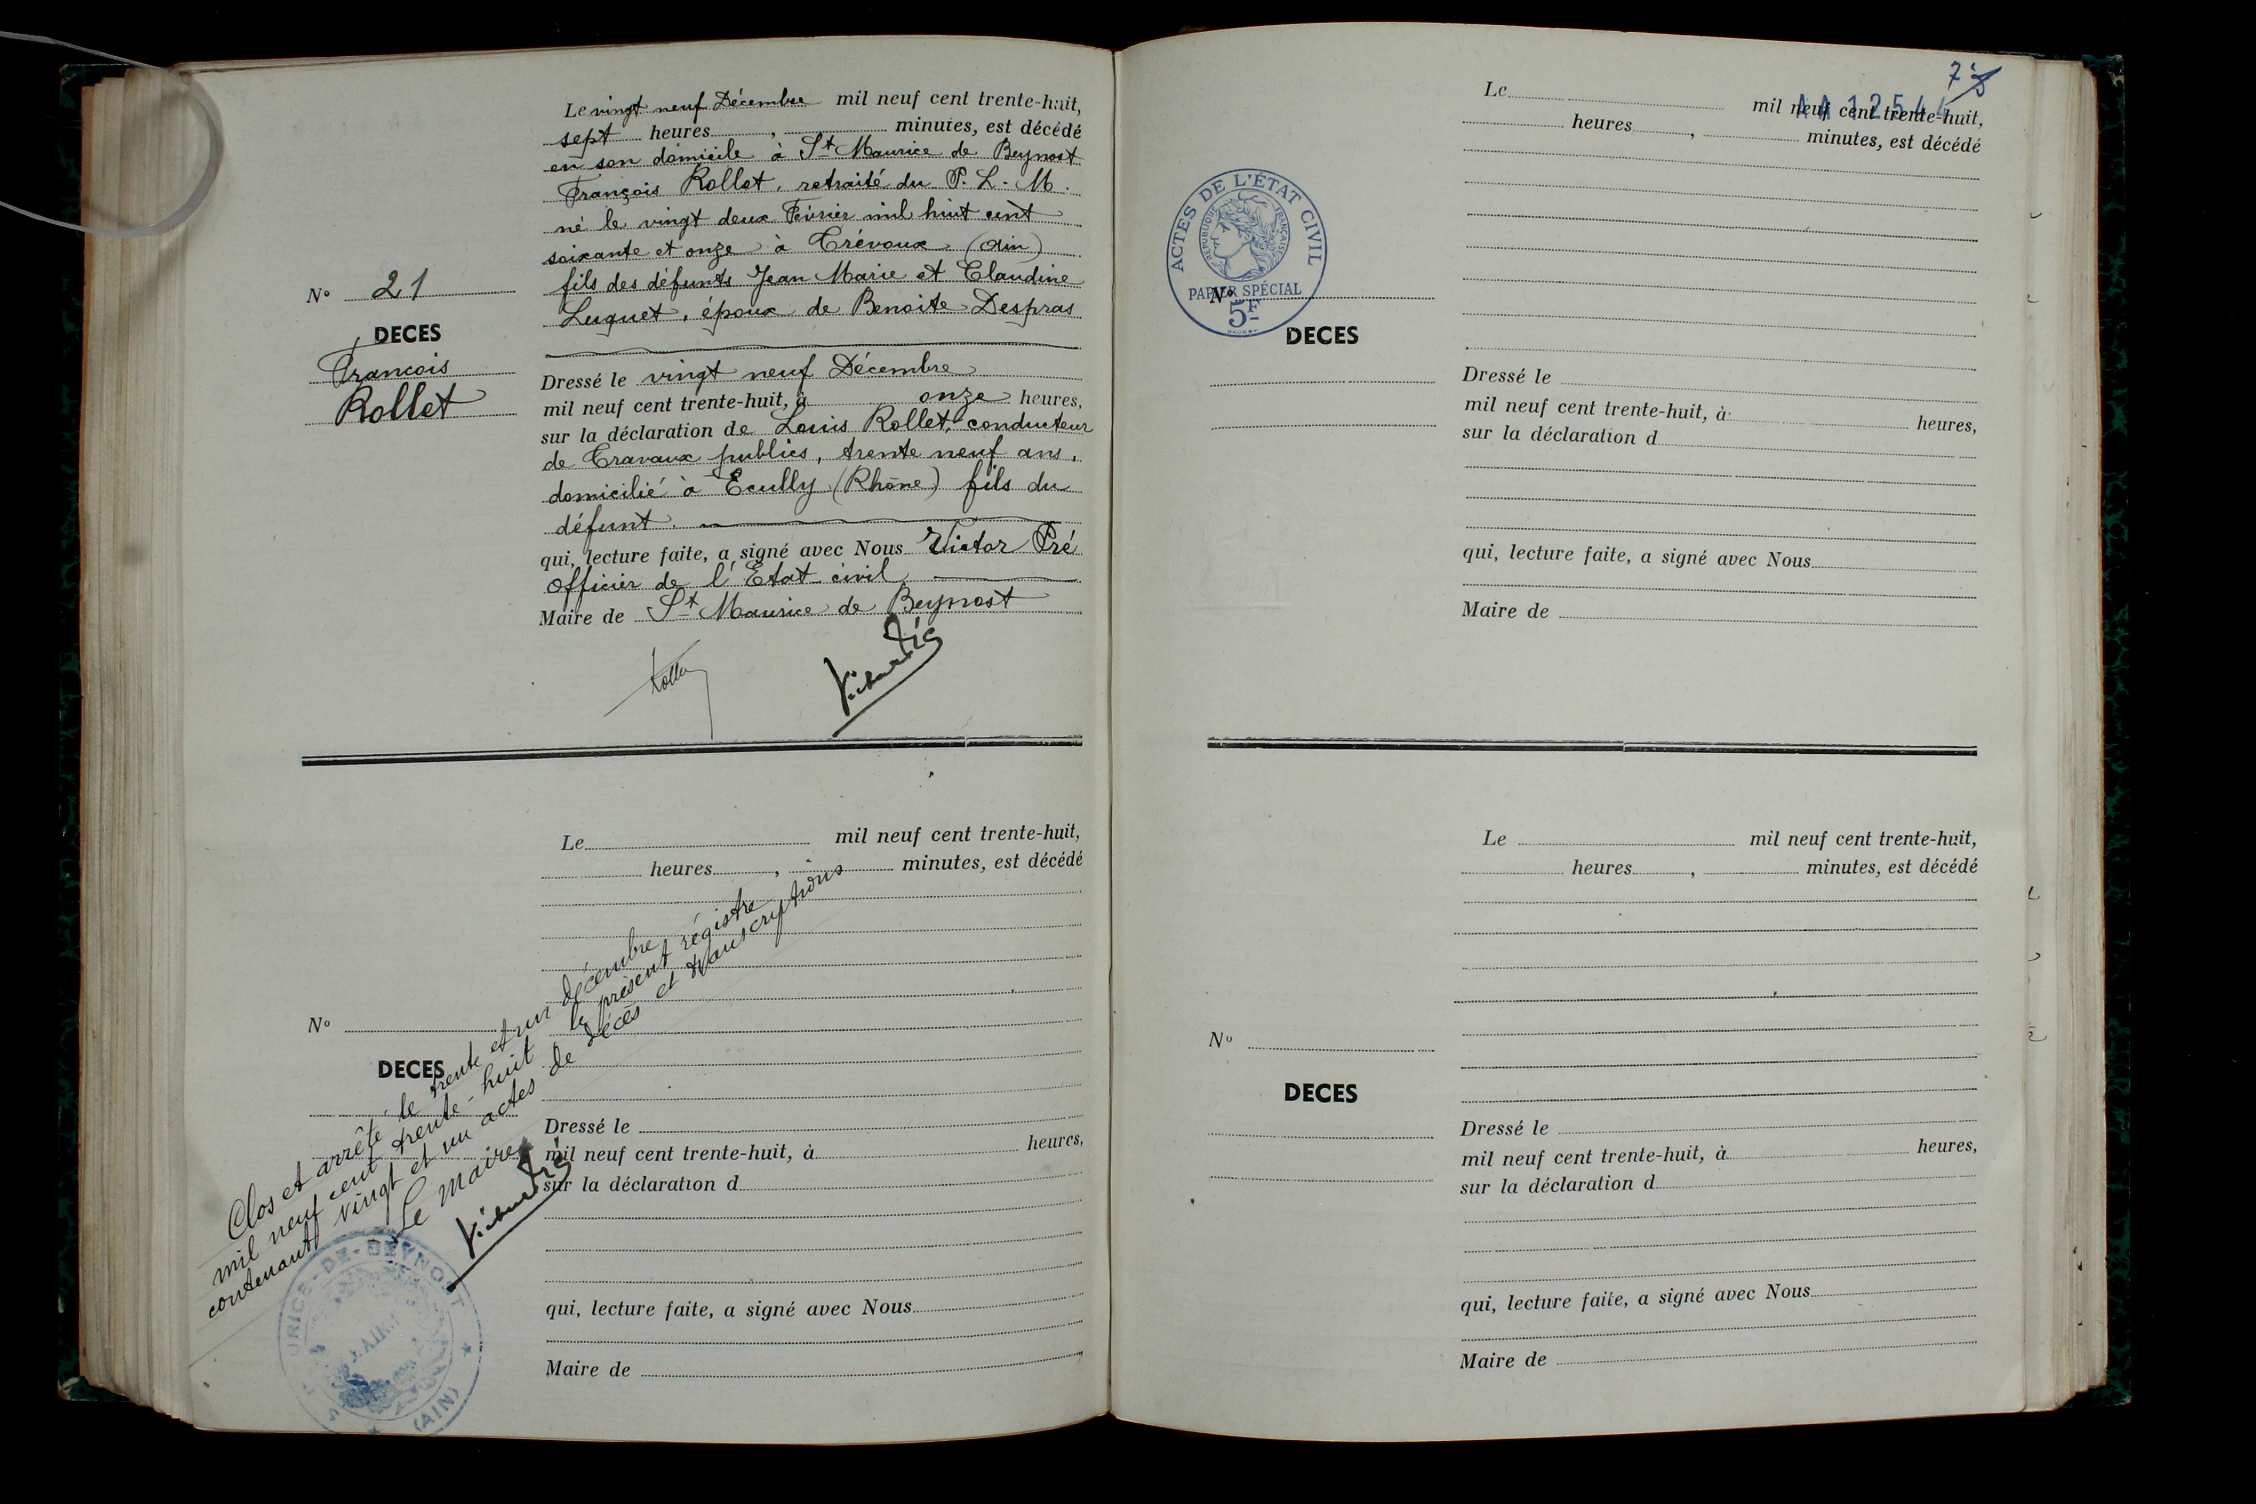 Le vingt neuf Décembre mil neuf cent trente-huit,
sept heures , minutes, est décédé
en son domicile à St Maurice de Beynost
François Rollet, retraité du P. L. M.
né le vingt deux Février mil huit cent
soixante et onze à Trévoux (Ain)
fils des défunts Jean Marie et Claudine
Luquet, époux de Benoite Despras
No 21
DECES
François
Rollet
Dressé le vingt neuf Décembre
mil neuf cent trente-huit, à onze heures,
sur la déclaration de Louis Rollet, conducteur
de Travaux publics, trente neuf ans,
domicilié à Ecully (Rhône) fils du
défunt.
qui, lecture faite, a signé avec Nous Victor Pré
officier de l'Etat civil
Maire de St Maurice de Beynost
Le mil neuf cent trente-huit,
heures , minutes, est décédé
No
DECES
Dressé le
mil neuf cent trente-huit, à heures,
sur la déclaration d
qui, lecture faite, a signé avec Nous
Maire de
Clos et arrêté le trente et un décembre
mil neuf cent trente-huit le présent régistre
contenant vingt et un actes de décès et transcriptions
Le Maire
URICE-DE-BEYNOST
(AIN)
7
Le mil neuf cent trente-huit,
heures , minutes, est décédé
ACTES DE L'ÉTAT CIVIL
RÉPUBLIQUE FRANÇAISE
PAPIER SPÉCIAL
5F
No
DECES
Dressé le
mil neuf cent trente-huit, à heures,
sur la déclaration d
qui, lecture faite, a signé avec Nous
Maire de
Le mil neuf cent trente-huit,
heures , minutes, est décédé
No
DECES
Dressé le
mil neuf cent trente-huit, à heures,
sur la déclaration d
qui, lecture faite, a signé avec Nous
Maire de